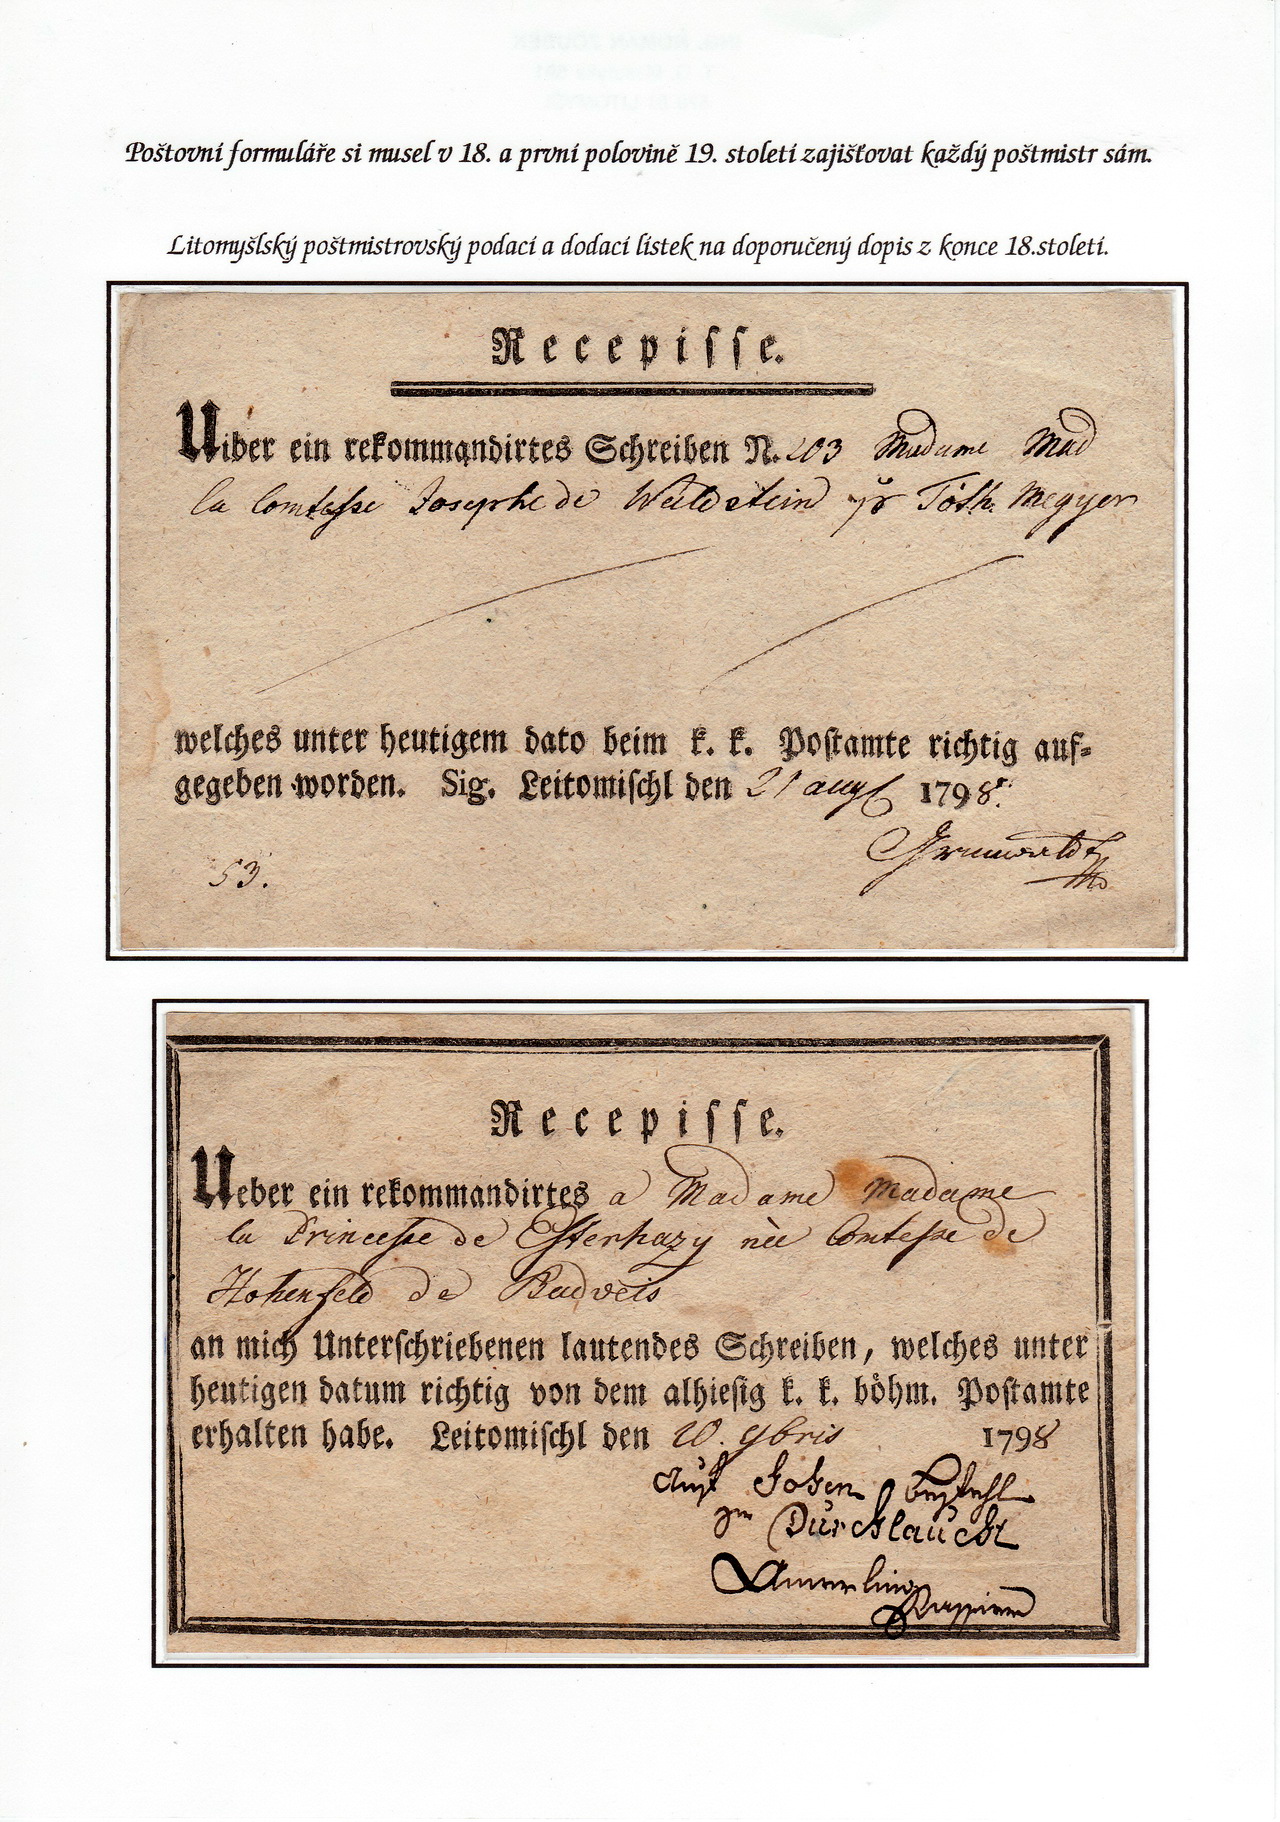 Poštovní formuláře si musel v 18. a první polovině 19. století zajišťovat každý poštmistr sám.
Litomyšlský poštmistrovský podací a dodací lístek na doporučený dopis z konce 18.století.
Recepisse.
Uiber ein rekommandirtes Schreiben N. 203 Madame Mad
la Comtesse Josephe de Tóth Megyer
welches unter heutigem dato beim k. k. Postamte richtig auf-
gegeben worden. Sig. Leitomischl den 21 aug 1798
Grunwaldt
53.
Recepisse.
Ueber ein rekommandirtes a Madame Madame
la Princesse de Esterhazy née Comtesse de
Hohenfeld de Budveis
an mich Unterschriebenen lautendes Schreiben, welches unter
heutigen datum richtig von dem alhiesig k. k. böhm. Postamte
erhalten habe. Leitomischl den 20. 9bris 1798
Auf hohen
Durchlaucht